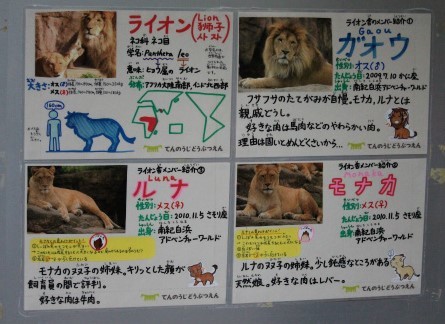 ライオン
(Lion
獅子
ネコ科 ネコ目
学名: Panthera leo
意味: ヒョウ属の ライオン
大きさ: オス(♂)
メス(♀)
分布: アフリカ大陸南部、インド北西部
てんのうじどうぶつえん
ライオン舎のメンバー紹介①
Gaou
ガオウ
性別: オス(♂)
たんじょう日: 2009.7.10 かに座
出身: 南紀白浜
アドベンチャーワールド
フサフサのたてがみが自慢。モナカ、ルナとは
親戚どうし。
好きな肉は馬肉などのやわらかい肉。
理由は固いとめんどくさいから…
てんのうじどうぶつえん
ライオン舎のメンバー紹介③
Luna
ルナ
性別: メス(♀)
たんじょう日: 2010.11.5 さそり座
出身: 南紀白浜
アドベンチャーワールド
モナカの双子の姉妹。キリッとした顔が
飼育員の間で評判。
好きな肉は牛肉。
てんのうじどうぶつえん
ライオン舎のメンバー紹介②
Monaka
モナカ
性別: メス(♀)
たんじょう日: 2010.11.5 さそり座
出身: 南紀白浜
アドベンチャーワールド
ルナの双子の姉妹。少し鈍感なところがある
天然娘。好きな肉はレバー。
てんのうじどうぶつえん